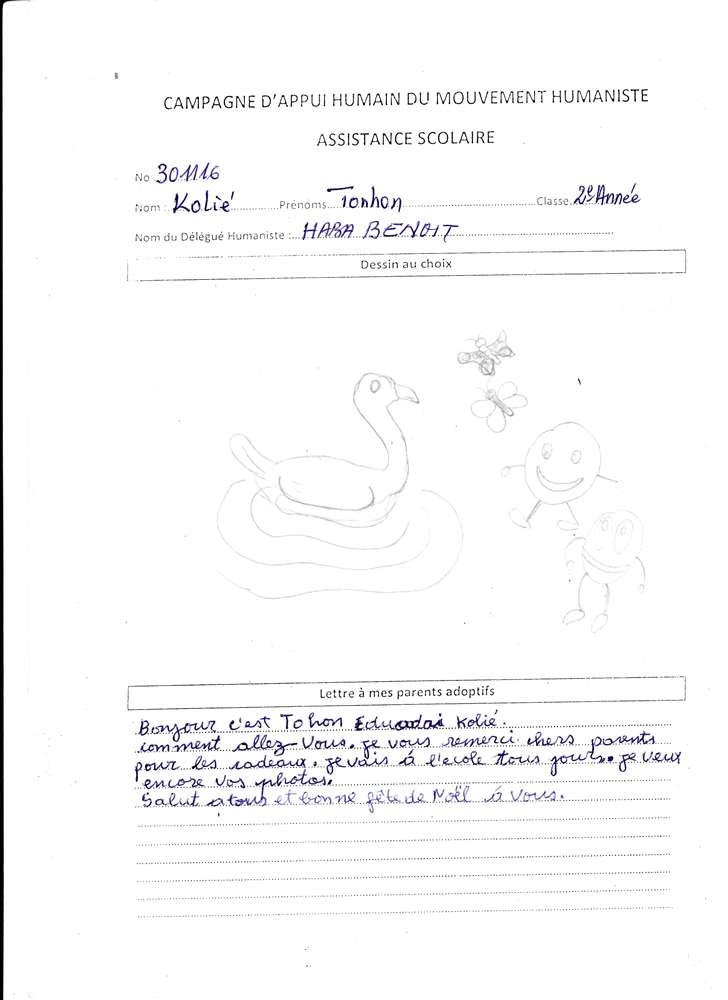 CAMPAGNE D'APPUI HUMAIN DU MOUVEMENT HUMANISTE
ASSISTANCE SCOLAIRE
No 301116
Nom : Kolié Prénoms Tonhon Classe 2e Année
Nom du Délégué Humaniste : HABA BENOIT
Dessin au choix
Lettre à mes parents adoptifs
Bonjour c'est Tohon Kolié.
comment allez-Vous. je vous remerci chers parents
pour les cadeaux. je vais à l'ecole tous jours. je veux
encore vos photos.
Salut a tous et bonne fête de Noël à Vous.